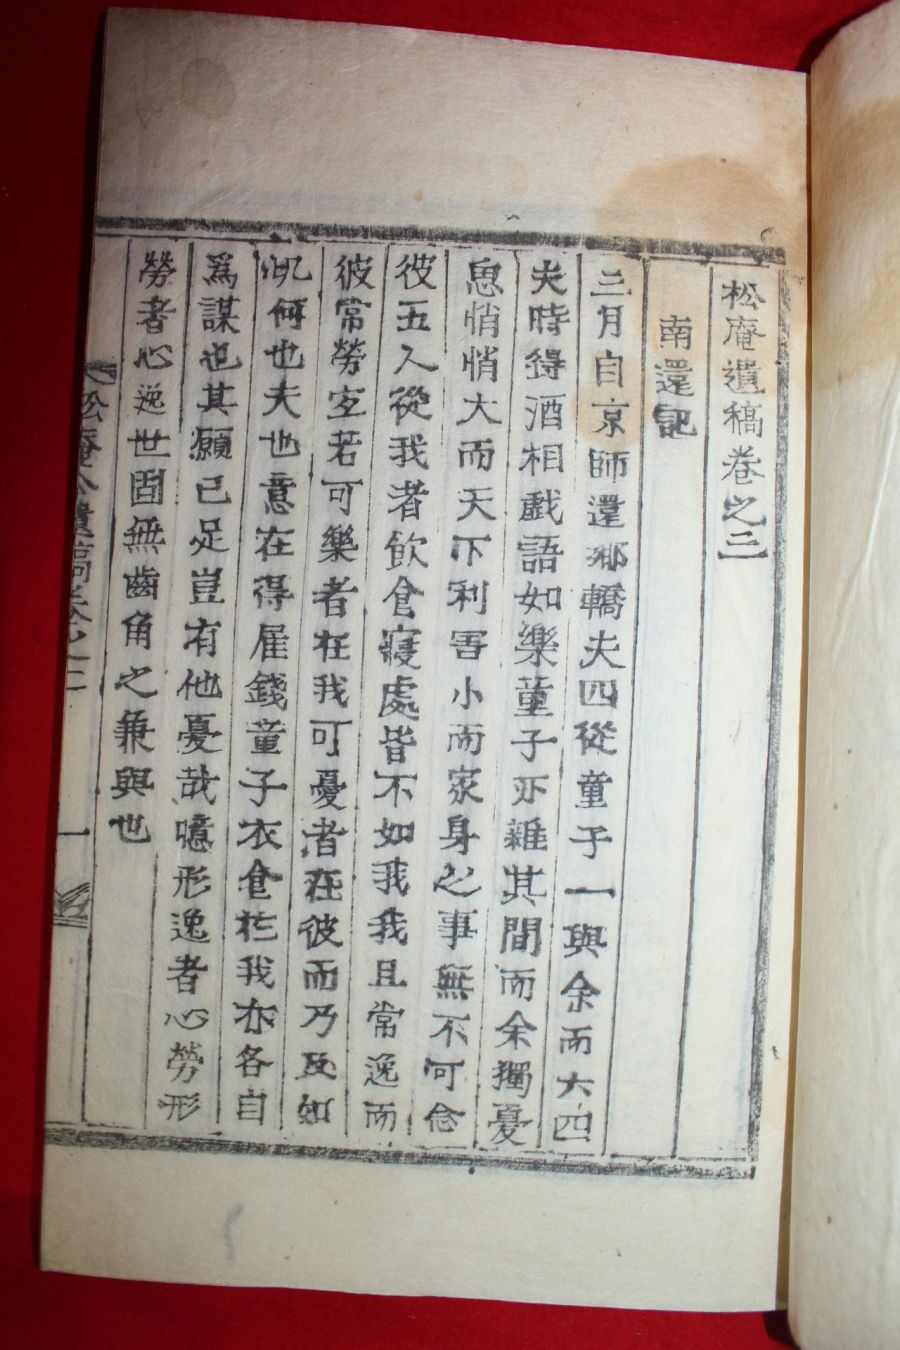 松庵遺稿卷之二
南還記
三月自京師還鄕轎夫四從童子一與余而六四
夫時得酒相戱語如樂童子亦雜其間而余獨憂
思悄悄大而天下利害小而家身之事無不可念
彼五人從我者飮食寢處皆不如我我且常逸而
彼常勞宜若可樂者在我可憂者在彼而乃反如
此何也夫也意在得雇錢童子衣食於我亦各自
爲謀也其願已足豈有他憂哉噫形逸者心勞形
勞者心逸世固無齒角之兼與也
松庵公遺稿卷之二
一